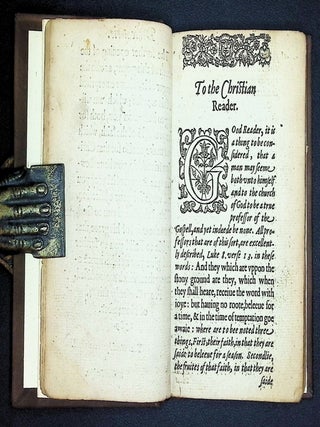 To the Christian
Reader.
GOod Reader, it is
a thing to be con-
sidered, that a
man may seeme
both unto himself
and to the church
of God to be a true
professor of the
Gospell, and yet indeede be none. All pro-
fessors that are of this sort, are excellent-
ly described, Luke 8. verse 13. in these
words: And they which are vppon the
stony ground are they, which when
they shall heare, receiue the word with
ioye: but hauing no roote, beleeue for
a time, & in the time of temptation goe
awaie: where are to bee noted three
things, First their faith, in that they are
saide to beleeue for a season. Secondlie,
the fruites of that faith, in that they are
saide